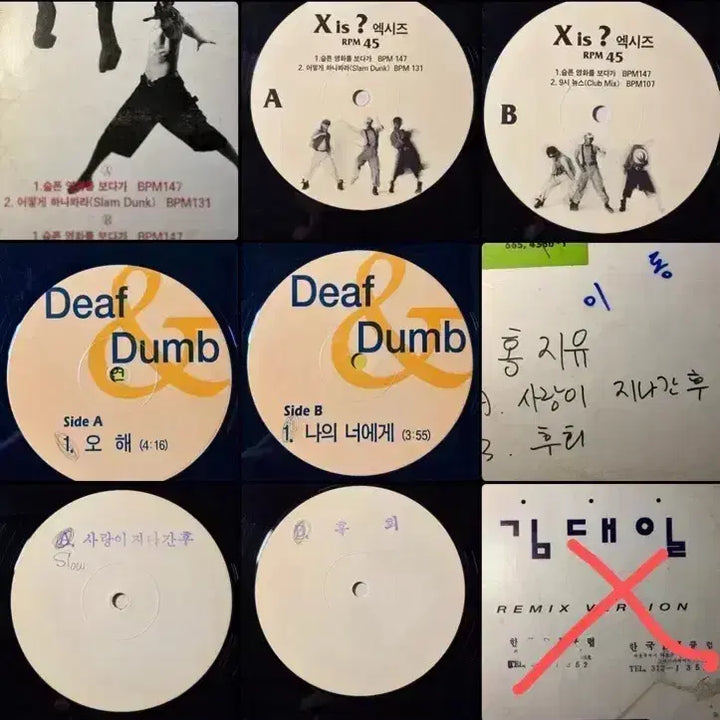 A
1.슬픈 영화를 보다가 BPM147
2. 어떻게 하나봐라(Slam Dunk) BPM131
B
1.슬픈 영화를 보다가 BPM147
X is ? 엑시즈
RPM 45
1.슬픈 영화를 보다가 BPM 147
2. 어떻게 하나봐라(Slam Dunk) BPM 131
A
X is ? 엑시즈
RPM 45
1.슬픈 영화를 보다가 BPM147
2. 9시 뉴스(Club Mix) BPM107
B
Deaf
&
Dumb
Side A
1. 오 해 (4:16)
Deaf
&
Dumb
Side B
1. 나의 너에게 (3:55)
이 동
홍 지유
A. 사랑이 지나간 후
B. 후회
A. 사랑이 지나간 후
Slow
B. 후 회
김대일
REMIX VERSION
TEL. 312-1352